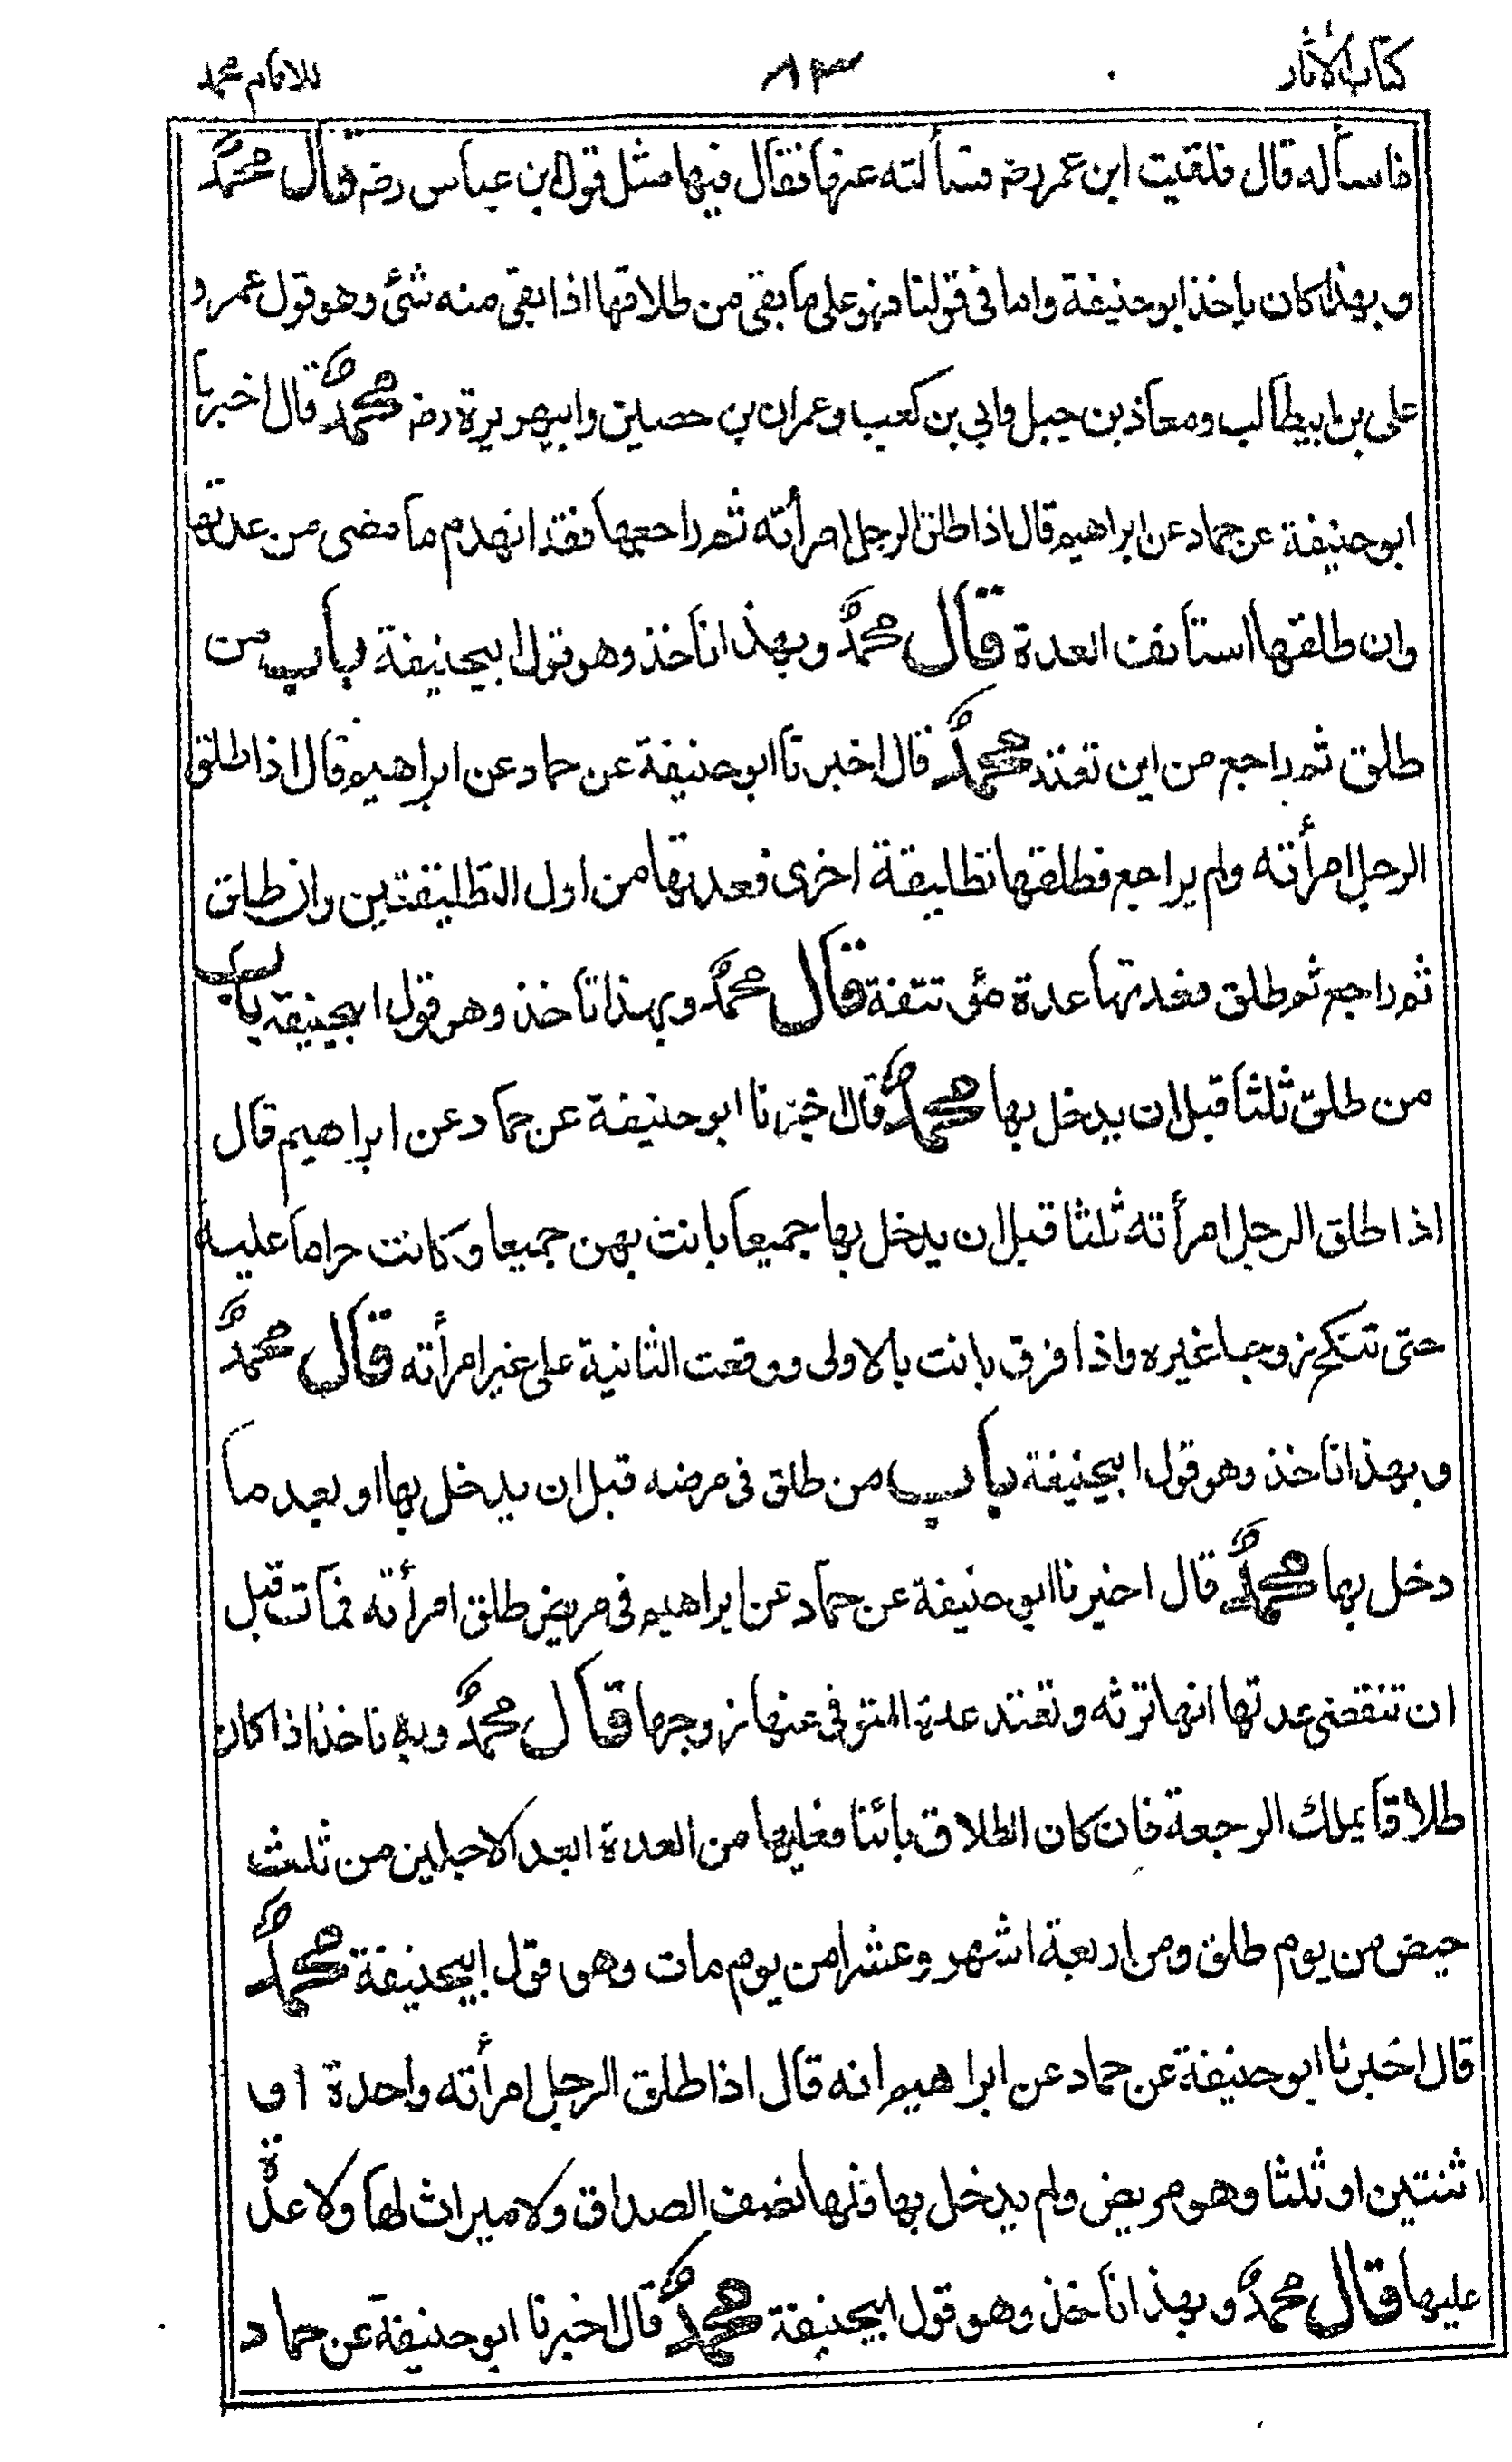 كتاب الآثار ٨٣ للامام محمد
فاسأله قال فلقيت ابن عمر رضـ فسألته عنها فقال فيها مثل قول ابن عباس رضـ قال محمد
و بهذا كان ياخذ ابو حنيفة واما فى قولنا فهو على ما بقى من طلاقها اذا بقى منه شئ وهو قول عمر و
على بن ابيطالب ومعاذ بن جبل وابي بن كعب وعمران بن حصين وابيهريرة رضـ محمدؒ قال اخبرنا
ابو حنيفة عن حماد عن ابراهيم قال اذا طلق الرجل امرأته ثم راجعها فقد انهدم ما مضى من عدتها
وان طلقها استأنفت العدة قال محمدؒ وبهذا ناخذ وهو قول ابيحنيفة باب من
طلق ثم راجع من اين تعتد محمدؒ قال اخبرنا ابو حنيفة عن حماد عن ابراهيم قال اذا طلق
الرجل امرأته ولم يراجع فطلقها تطليقة اخرى فعدتها من اول التطليقتين وان طلق
ثم راجع ثم طلق فعدتها عدة مؤتنفة قال محمدؒ وبهذا ناخذ وهو قول ابيحنيفة باب
من طلق ثلثا قبل ان يدخل بها محمدؒ قال اخبرنا ابو حنيفة عن حماد عن ابراهيم قال
اذا طلق الرجل امرأته ثلثا قبل ان يدخل بها جميعا بانت بهن جميعا وكانت حراما عليه
حتى تنكح زوجا غيره واذا فرق بانت بالاولى ووقعت الثانية على غير امرأته قال محمدؒ
و بهذا ناخذ وهو قول ابيحنيفة باب من طلق فى مرضه قبل ان يدخل بها او بعد ما
دخل بها محمدؒ قال اخبرنا ابو حنيفة عن حماد عن ابراهيم فى مريض طلق امرأته فمات قبل
ان تنقضى عدتها انها ترثه وتعتد عدة المتوفى عنها زوجها قال محمدؒ وبه ناخذ اذا كان
طلاقا يملك الرجعة فان كان الطلاق بائنا فعليها من العدة ابعد الاجلين من ثلث
حيض من يوم طلق ومن اربعة اشهر وعشرا من يوم مات وهو قول ابيحنيفة محمدؒ
قال اخبرنا ابو حنيفة عن حماد عن ابراهيم انه قال اذا طلق الرجل امرأته واحدة او
اثنتين او ثلثا وهو مريض ولم يدخل بها فلها نصف الصداق ولا ميراث لها ولا عدة
عليها قال محمدؒ وبهذا ناخذ وهو قول ابيحنيفة محمدؒ قال اخبرنا ابو حنيفة عن حماد